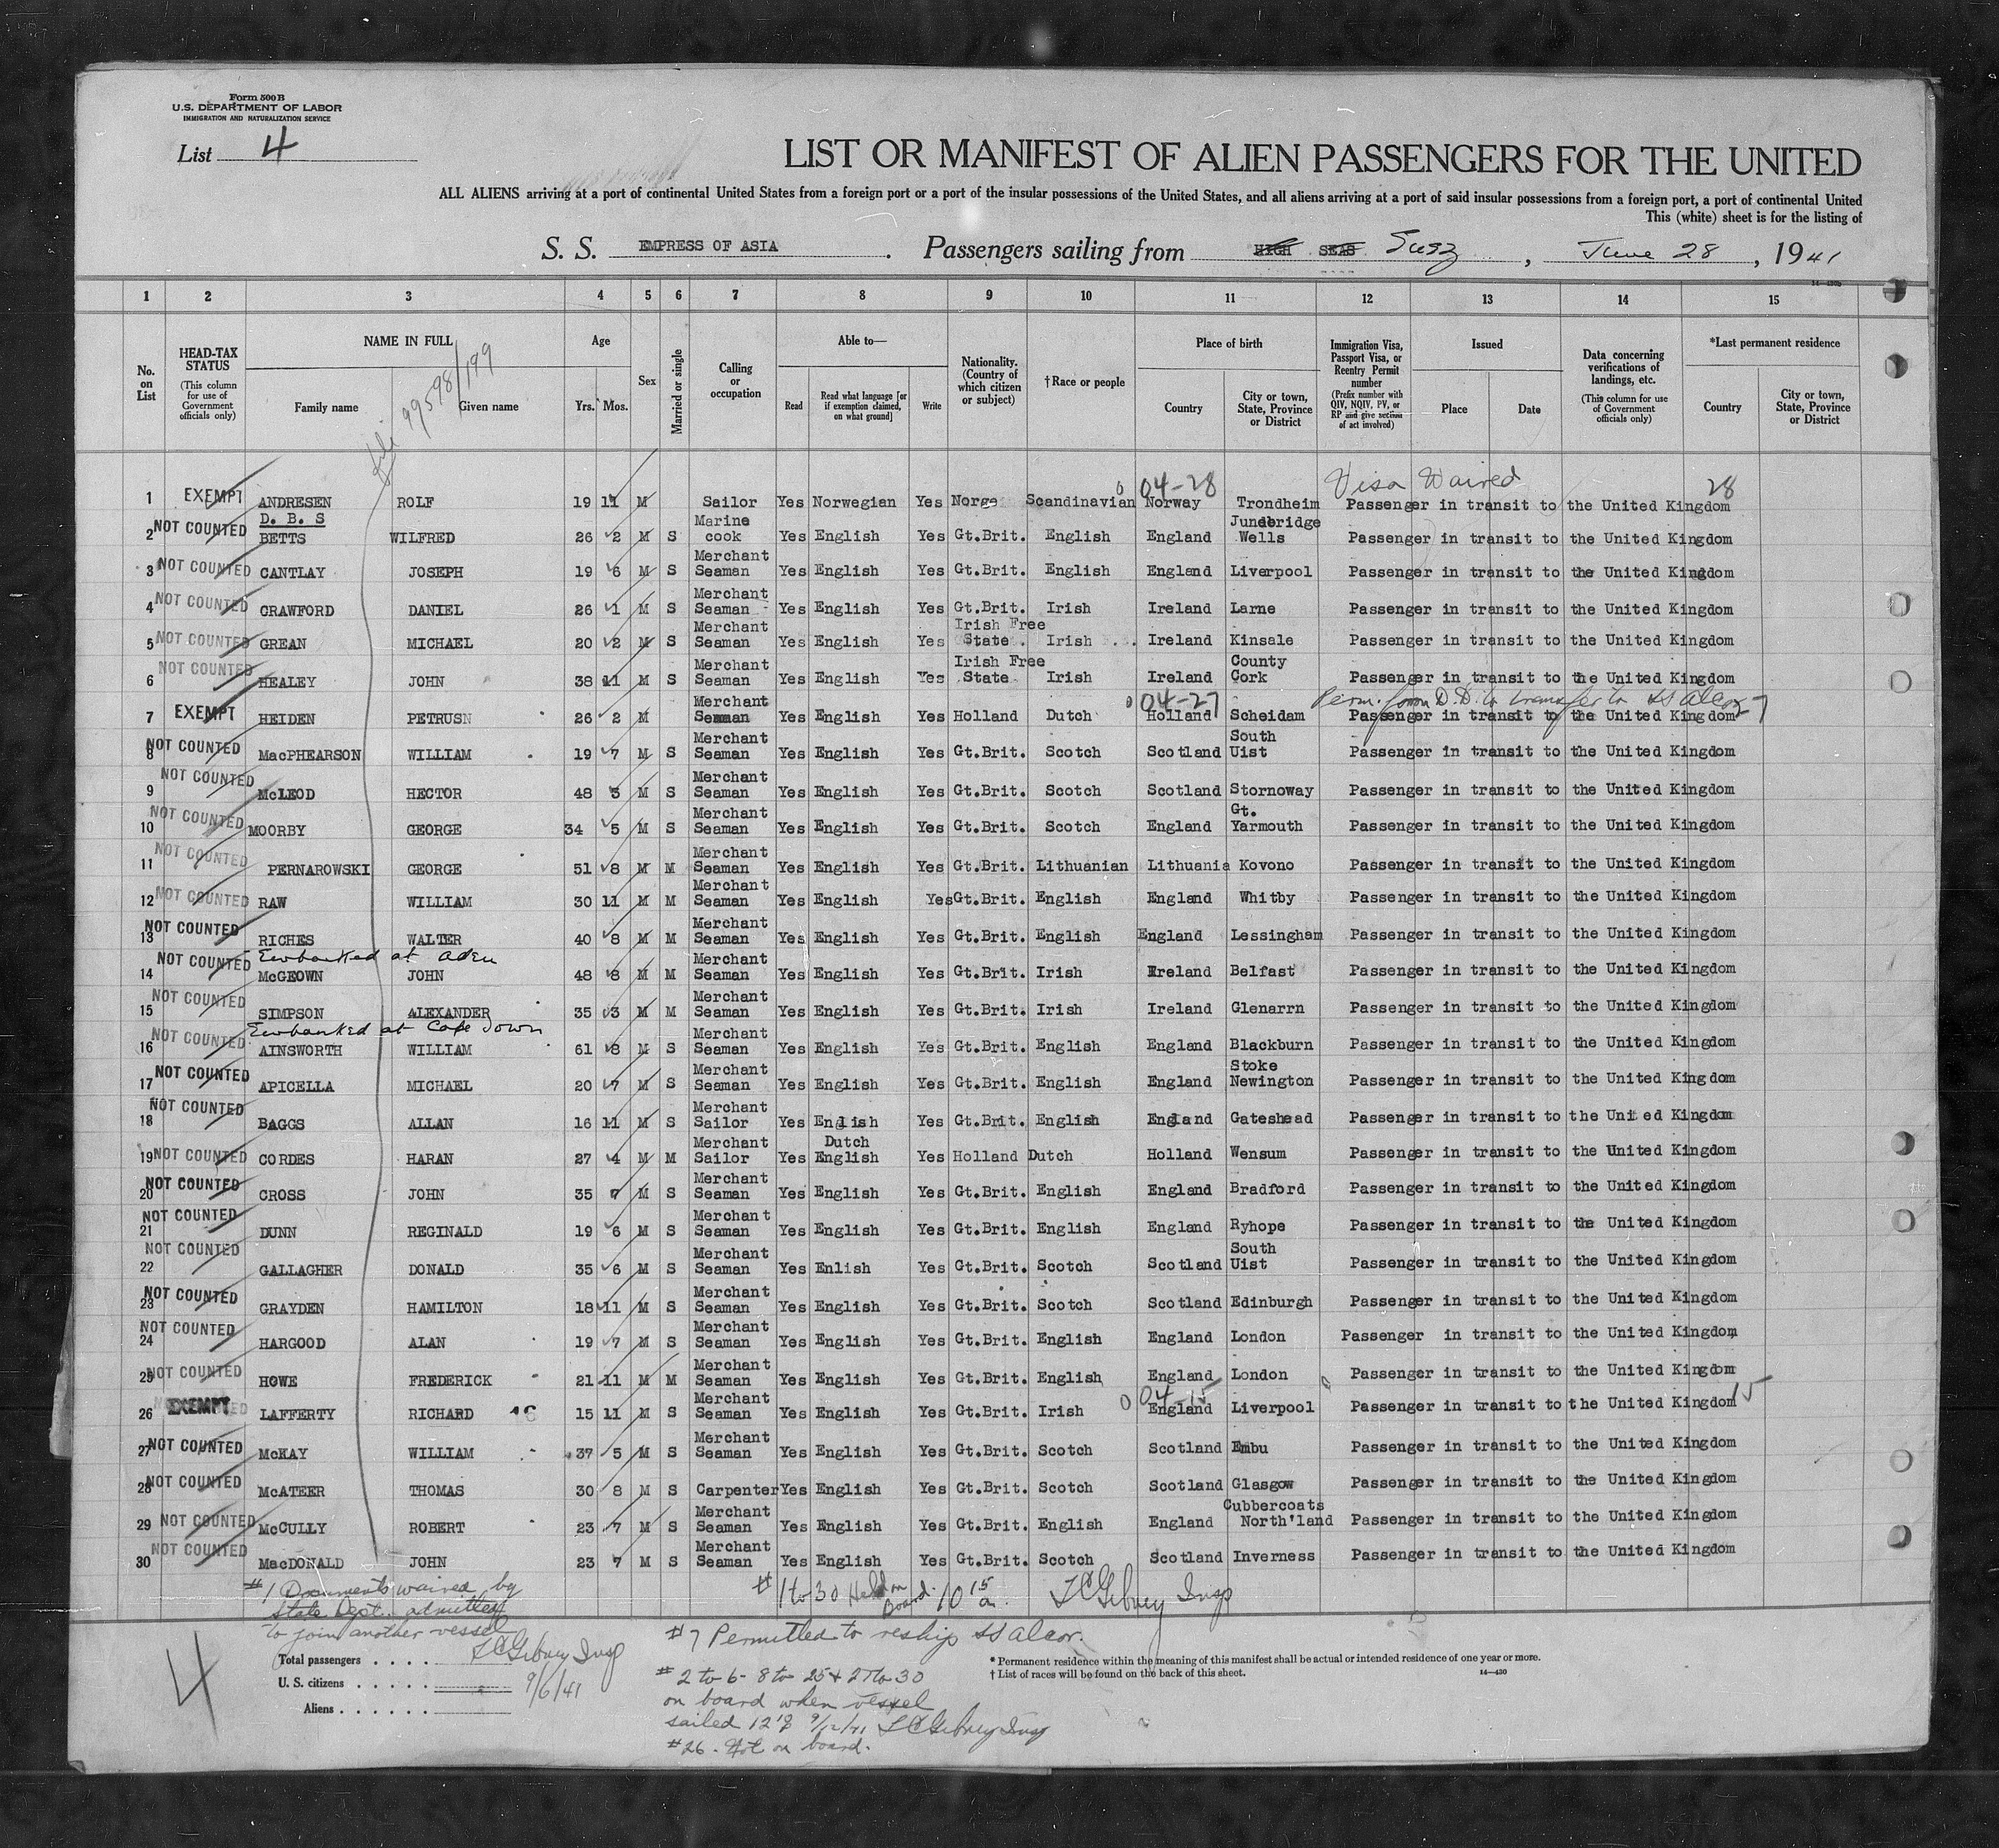 Form 500 B
U.S. DEPARTMENT OF LABOR
IMMIGRATION AND NATURALIZATION SERVICE
List 4
LIST OR MANIFEST OF ALIEN PASSENGERS FOR THE UNITED
ALL ALIENS arriving at a port of continental United States from a foreign port or a port of the insular possessions of the United States, and all aliens arriving at a port of said insular possessions from a foreign port, a port of continental United
This (white) sheet is for the listing of
S. S. EMPRESS OF ASIA . Passengers sailing from HIGH SEAS Suez , June 28 , 1941
14—430b
1 2 3 4 5 6 7 8 9 10 11 12 13 14 15
No. on List
HEAD-TAX STATUS (This column for use of Government officials only)
NAME IN FULL Family name Given name
file 99598/199
Age Yrs. Mos.
Sex
Married or single
Calling or occupation
Able to— Read Read what language [or if exemption claimed, on what ground] Write
Nationality. (Country of which citizen or subject)
†Race or people
Place of birth Country City or town, State, Province or District
Immigration Visa, Passport Visa, or Reentry Permit number (Prefix number with QIV, NQIV, PV, or RP and give section of act involved)
Issued Place Date
Data concerning verifications of landings, etc. (This column for use of Government officials only)
*Last permanent residence Country City or town, State, Province or District
04-28 Visa Waived 28
1 EXEMPT ANDRESEN ROLF 19 11 M Sailor Yes Norwegian Yes Norge Scandinavian Norway Trondheim Passenger in transit to the United Kingdom
D. B. S
2 NOT COUNTED BETTS WILFRED 26 2 M S Marine cook Yes English Yes Gt.Brit. English England Wells Passenger in transit to the United Kingdom
3 NOT COUNTED CANTLAY JOSEPH 19 6 M S Merchant Seaman Yes English Yes Gt.Brit. English England Liverpool Passenger in transit to the United Kingdom
4 NOT COUNTED CRAWFORD DANIEL 26 1 M S Merchant Seaman Yes English Yes Gt.Brit. Irish Ireland Larne Passenger in transit to the United Kingdom
5 NOT COUNTED GREAN MICHAEL 20 2 M S Merchant Seaman Yes English Yes Irish Free State Irish Ireland Kinsale Passenger in transit to the United Kingdom
6 NOT COUNTED HEALEY JOHN 38 11 M S Merchant Seaman Yes English Yes Irish Free State Irish Ireland County Cork Passenger in transit to the United Kingdom
04-27 Perm. from D.D. to transfer to SS Alcor 27
7 EXEMPT HEIDEN PETRUSN 26 2 M Merchant Seaman Yes English Yes Holland Dutch Holland Scheidam Passenger in transit to the United Kingdom
8 NOT COUNTED MacPHEARSON WILLIAM 19 7 M S Merchant Seaman Yes English Yes Gt.Brit. Scotch Scotland South Uist Passenger in transit to the United Kingdom
9 NOT COUNTED McLEOD HECTOR 48 5 M S Merchant Seaman Yes English Yes Gt.Brit. Scotch Scotland Stornoway Passenger in transit to the United Kingdom
10 NOT COUNTED MOORBY GEORGE 34 5 M S Merchant Seaman Yes English Yes Gt.Brit. Scotch England Gt. Yarmouth Passenger in transit to the United Kingdom
11 NOT COUNTED PERNAROWSKI GEORGE 51 8 M M Merchant Seaman Yes English Yes Gt.Brit. Lithuanian Lithuania Kovono Passenger in transit to the United Kingdom
12 NOT COUNTED RAW WILLIAM 30 11 M M Merchant Seaman Yes English Yes Gt.Brit. English England Whitby Passenger in transit to the United Kingdom
13 NOT COUNTED RICHES WALTER 40 8 M M Merchant Seaman Yes English Yes Gt.Brit. English England Lessingham Passenger in transit to the United Kingdom
Embarked at Aden
14 NOT COUNTED McGEOWN JOHN 48 8 M M Merchant Seaman Yes English Yes Gt.Brit. Irish Ireland Belfast Passenger in transit to the United Kingdom
15 NOT COUNTED SIMPSON ALEXANDER 35 3 M M Merchant Seaman Yes English Yes Gt.Brit. Irish Ireland Glenarrn Passenger in transit to the United Kingdom
Embarked at Cape Town
16 NOT COUNTED AINSWORTH WILLIAM 61 8 M S Merchant Seaman Yes English Yes Gt.Brit. English England Blackburn Passenger in transit to the United Kingdom
17 NOT COUNTED APICELLA MICHAEL 20 7 M S Merchant Seaman Yes English Yes Gt.Brit. English England Stoke Newington Passenger in transit to the United Kingdom
18 NOT COUNTED BAGGS ALLAN 16 11 M S Merchant Sailor Yes English Yes Gt.Brit. English England Gateshead Passenger in transit to the United Kingdom
19 NOT COUNTED CORDES HARAN 27 4 M M Merchant Sailor Yes Dutch English Yes Holland Dutch Holland Wensum Passenger in transit to the United Kingdom
20 NOT COUNTED CROSS JOHN 35 7 M S Merchant Seaman Yes English Yes Gt.Brit. English England Bradford Passenger in transit to the United Kingdom
21 NOT COUNTED DUNN REGINALD 19 6 M S Merchant Seaman Yes English Yes Gt.Brit. English England Ryhope Passenger in transit to the United Kingdom
22 NOT COUNTED GALLAGHER DONALD 35 6 M S Merchant Seaman Yes Enlish Yes Gt.Brit. Scotch Scotland South Uist Passenger in transit to the United Kingdom
23 NOT COUNTED GRAYDEN HAMILTON 18 11 M S Merchant Seaman Yes English Yes Gt.Brit. Scotch Scotland Edinburgh Passenger in transit to the United Kingdom
24 NOT COUNTED HARGOOD ALAN 19 7 M S Merchant Seaman Yes English Yes Gt.Brit. English England London Passenger in transit to the United Kingdom
25 NOT COUNTED HOWE FREDERICK 21 11 M M Merchant Seaman Yes English Yes Gt.Brit. English England London Passenger in transit to the United Kingdom
04-15 15
26 EXEMPT LAFFERTY RICHARD 16 15 11 M S Merchant Seaman Yes English Yes Gt.Brit. Irish England Liverpool Passenger in transit to the United Kingdom
27 NOT COUNTED McKAY WILLIAM 37 5 M S Merchant Seaman Yes English Yes Gt.Brit. Scotch Scotland Embu Passenger in transit to the United Kingdom
28 NOT COUNTED McATEER THOMAS 30 8 M S Carpenter Yes English Yes Gt.Brit. Scotch Scotland Glasgow Passenger in transit to the United Kingdom
29 NOT COUNTED McCULLY ROBERT 23 7 M S Merchant Seaman Yes English Yes Gt.Brit. English England Cubbercoats North'land Passenger in transit to the United Kingdom
30 NOT COUNTED MacDONALD JOHN 23 7 M S Merchant Seaman Yes English Yes Gt.Brit. Scotch Scotland Inverness Passenger in transit to the United Kingdom
#1 Documents waived by
State Dept. admitted
to join another vessel
Insp
9/6/41
# 1 to 30 Held on Board. 10 15 a. Insp
4
Total passengers . . . .
U. S. citizens . . . . .
Aliens . . . . . .
#7 Permitted to reship SS Alcor.
#2 to 6 - 8 to 25 + 27 to 30
on board when vessel
sailed 9/12/41 Insp
#26. Not on board.
* Permanent residence within the meaning of this manifest shall be actual or intended residence of one year or more.
† List of races will be found on the back of this sheet. 14—430